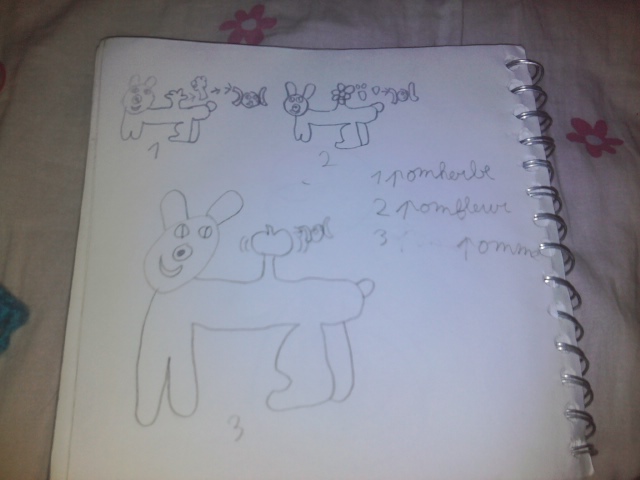 1
2
1 pomherbe
2 pomfleur
3 pomme
3